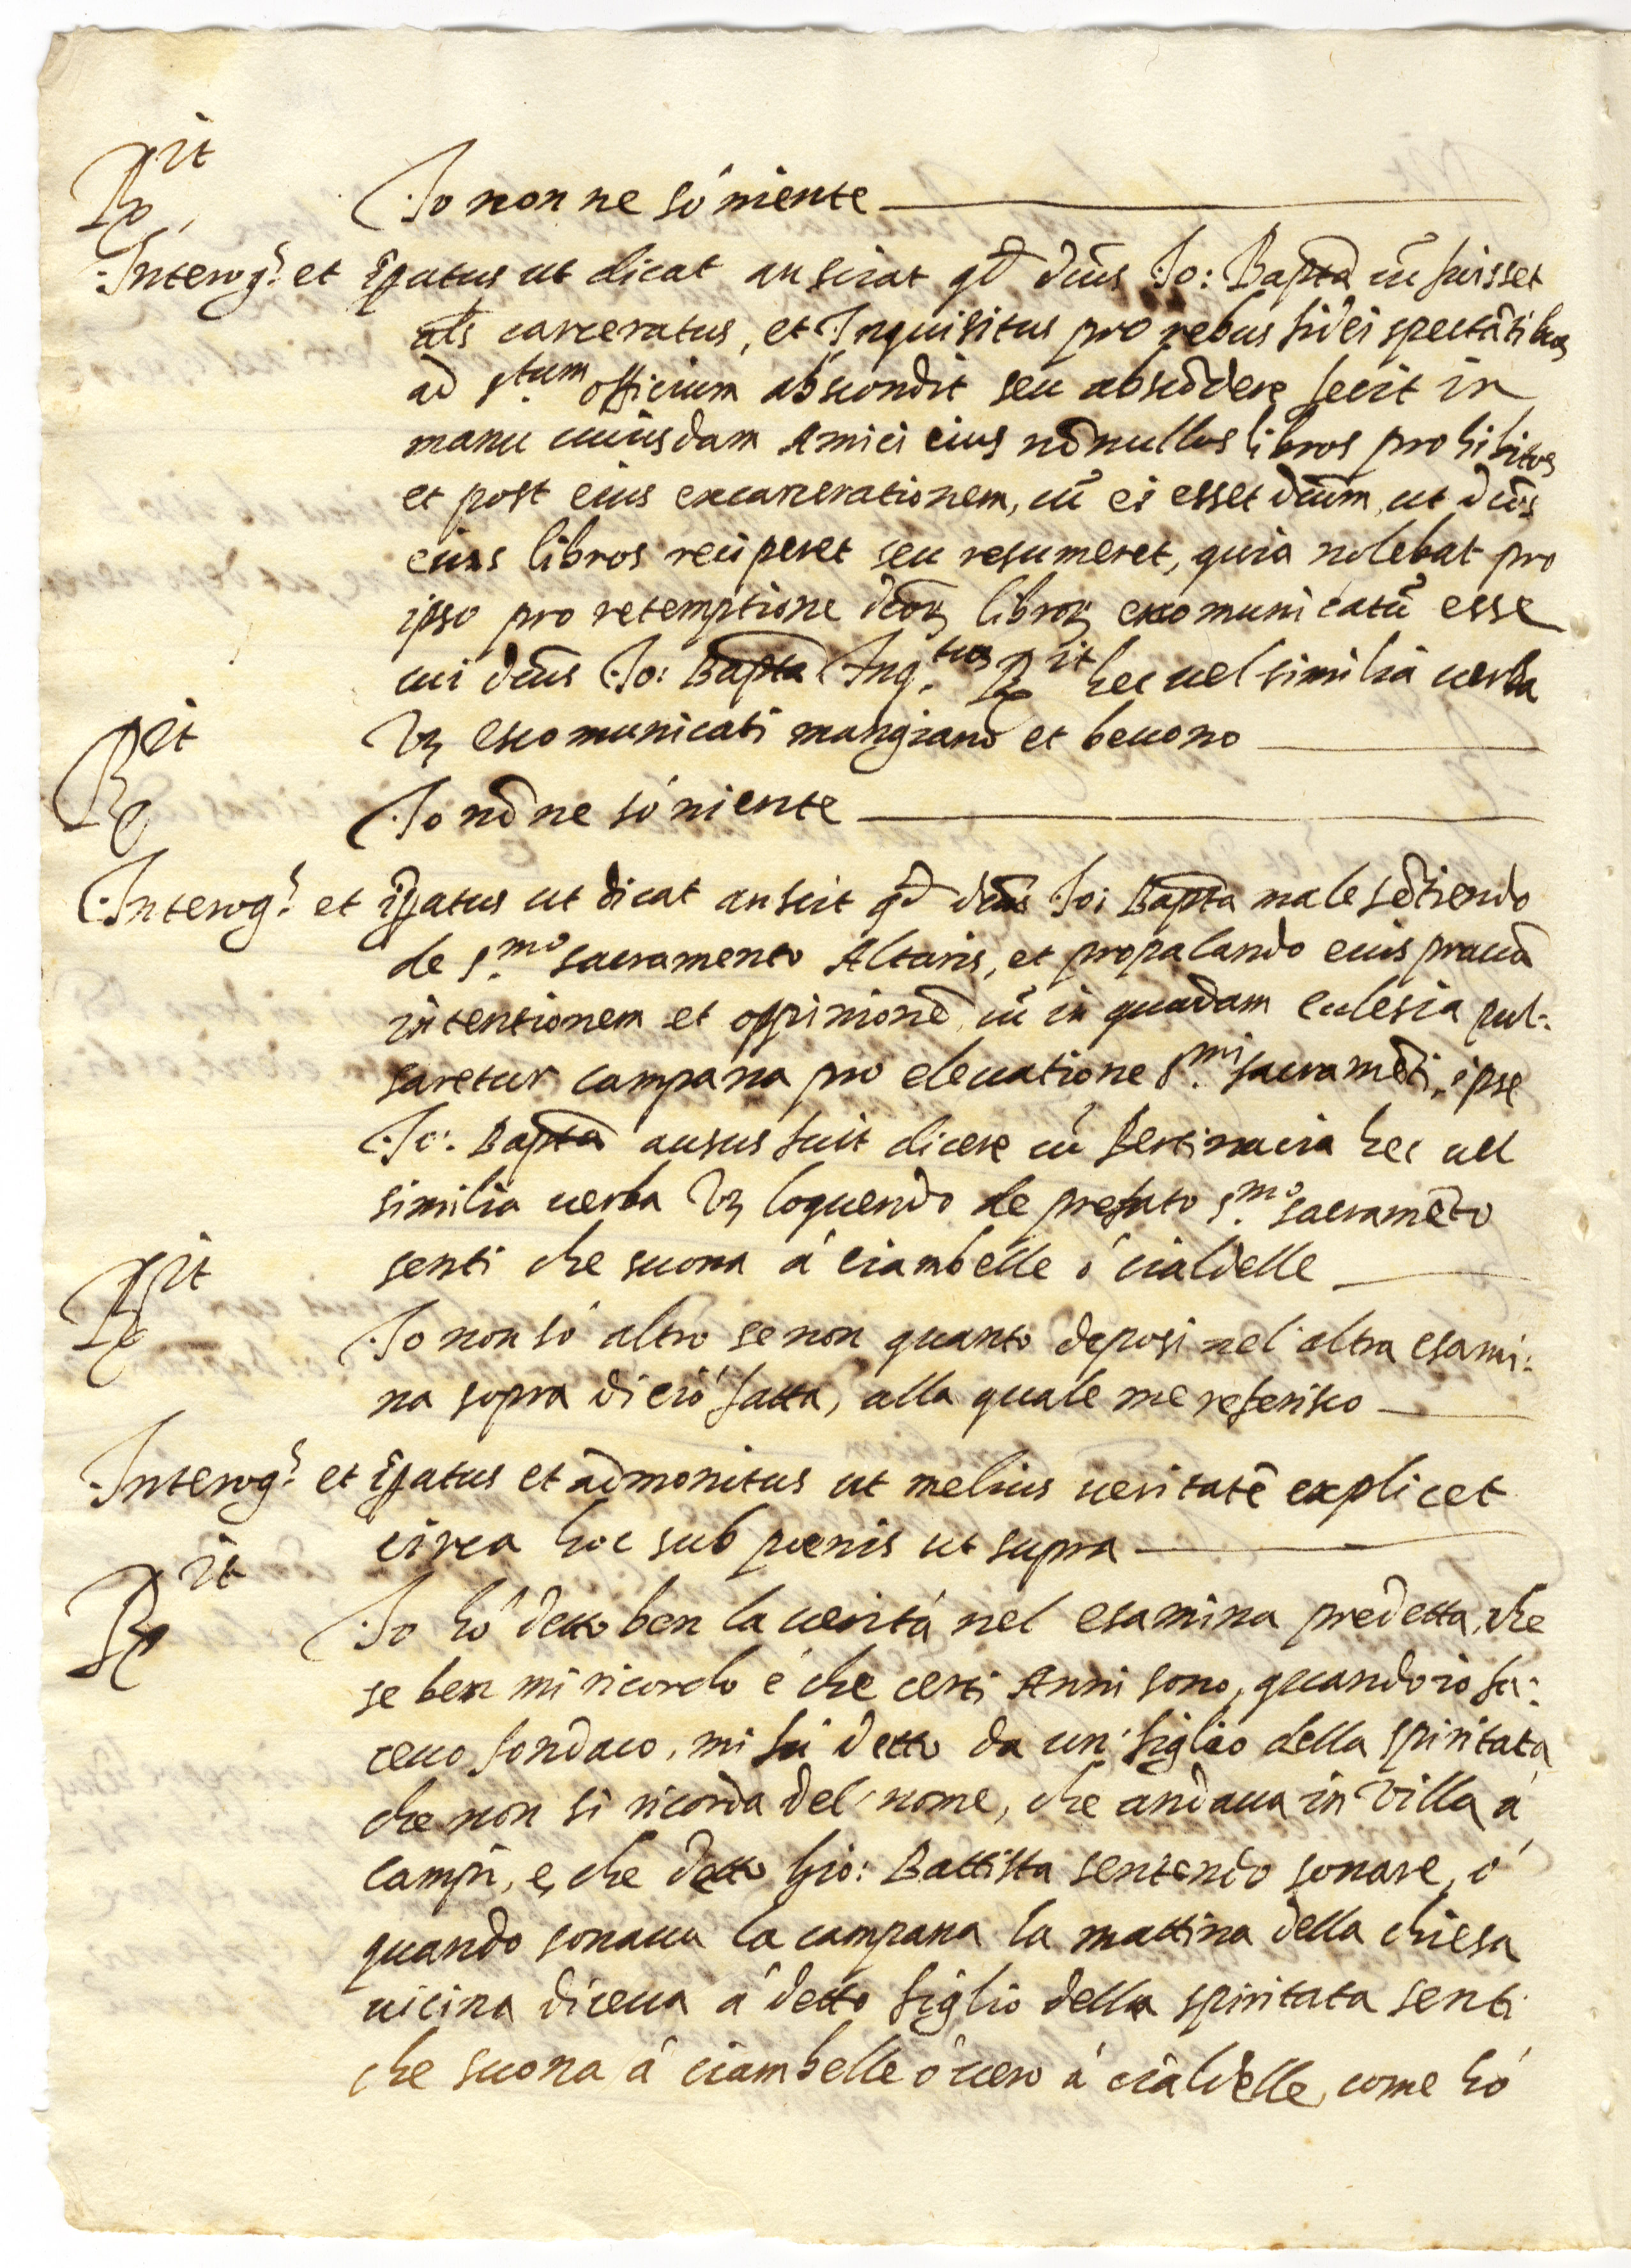 R.it Io non ne só niente
Interrog.s et īpatus ut dicat an sciat qd dcūs Io: Bapta cū fuisset
als carceratus, et Inquisitus pro rebus fidei spectātibus
ad s.tum officium abscondit seu abscōdere fecit in
manu cuiusdam Amici eius nōnullos libros prohibitos
et post eius excarcerationem, cū ei esset dcūm, ut dcōs
eius libros reciperet seu resumeret, quia nolebat pro
ipso pro retemptione dcōꝝ libroꝝ excomunicatū esse
cui dcūs Io: Bapta Inq.tus R.it hec uel similia uerba
Vꝫ escomunicati mangiano et beuono
R.it Io nō ne só niente
Interrog.s et īpatus ut dicat an scit qd dcūs Io: Bapta male sētiendo
de s.mo sacramento Altaris, et propalando eius prauā
intentionem et oppinionē, cū in quadam eclesia pul:
saretur campana pro eleuatione s.mi sacramēti, ipse
Io: Bapta ausus fuit dicere cū pertinacia hec uel
similia uerba Vꝫ loquendo de prefato s.mo sacramēto
senti che suona á ciambelle ó cialdelle
R.it Io non só altro se non quanto deposi nel'altra esami:
na sopra di ció fatta, alla quale me referisco
Interrog.s et īpatus et admonitus ut melius ueritatē explicet
circa hoc sub poenis ut supra
R.it Io hó detto ben la ueritá nel esamina predetta, che
se ben mi ricordo é che certi Anni sono, quando io fa:
ceuo fondaco, mi fú detto da un'figlio della spiritata
che non si ricorda del'nome, che andaua in Villa á
campi, e, che detto Gio: Battista sentendo sonare, ó
quando sonaua la campana la mattina della chiesa
uicina diceua á detto figlio della spiritata senti
che suona á ciambelle ó uero á cialdelle, come hó